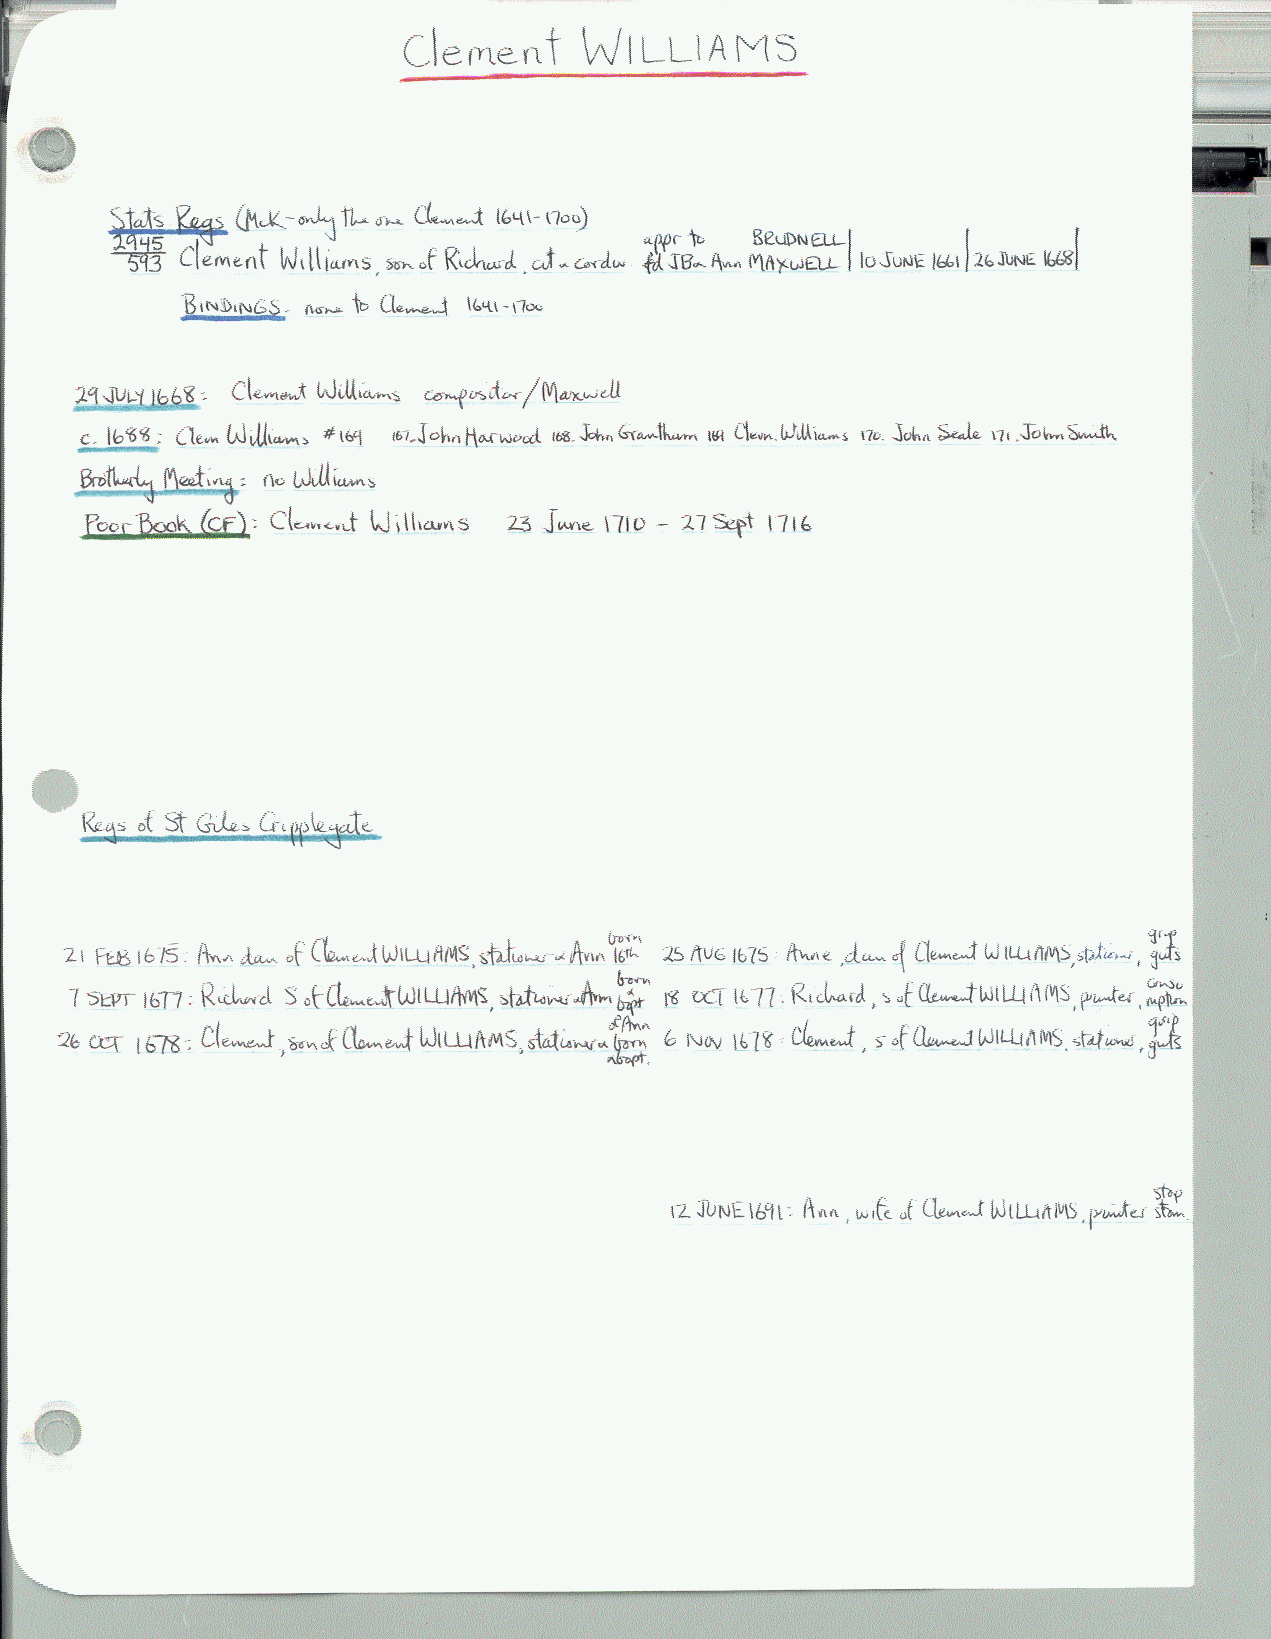 Clement WILLIAMS
Stats Regs (McK-only the one Clement 1641-1700)
appr to BRUDNELL
2945
593 Clement Williams, son of Richard, cit & cordw fd JB & Ann MAXWELL | 10 JUNE 1661 | 26 JUNE 1668 |
BINDINGS - none to Clement 1641-1700
29 JULY 1668: Clement Williams compositor/Maxwell
c. 1688: Clem Williams #169 167-John Harwood 168. John Grantham 169 Clem. Williams 170. John Seale 171. John Smith
Brotherly Meeting: no Williams
Poor Book (CF): Clement Williams 23 June 1710 - 27 Sept 1716
Regs of St Giles Cripplegate
21 FEB 1675: Ann dau of Clement WILLIAMS, stationer & Ann born 16th 25 AUG 1675: Anne, dau of Clement WILLIAMS, stationer, grip guts
7 SEPT 1677: Richard S of Clement WILLIAMS, stationer & Ann born & bapt 18 OCT 1677: Richard, s of Clement WILLIAMS, printer, consumption
26 OCT 1678: Clement, son of Clement WILLIAMS, stationer & Ann born & bapt. 6 NOV 1678: Clement, s of Clement WILLIAMS, stationer, grip guts
12 JUNE 1691: Ann, wife of Clement WILLIAMS, printer stop stom.